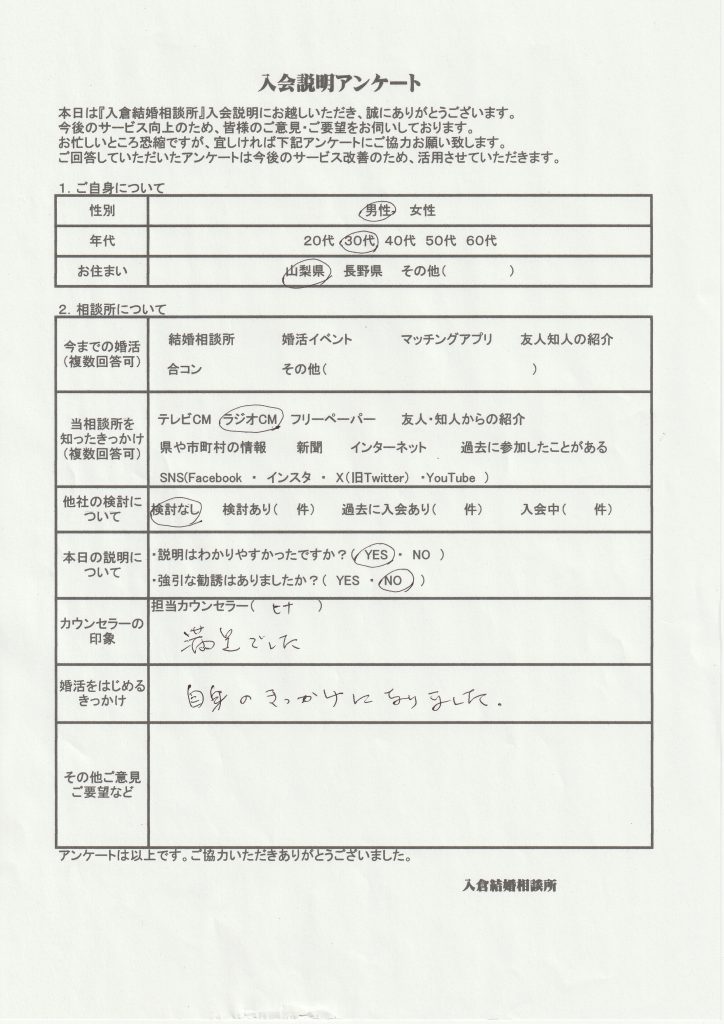 入会説明アンケート
本日は『入倉結婚相談所』入会説明にお越しいただき、誠にありがとうございます。
今後のサービス向上のため、皆様のご意見・ご要望をお伺いしております。
お忙しいところ恐縮ですが、宜しければ下記アンケートにご協力お願い致します。
ご回答していただいたアンケートは今後のサービス改善のため、活用させていただきます。
1. ご自身について
性別 男性・女性
年代 20代 30代 40代 50代 60代
お住まい 山梨県 長野県 その他( )
2. 相談所について
今までの婚活
(複数回答可)
結婚相談所 婚活イベント マッチングアプリ 友人知人の紹介
合コン その他( )
当相談所を
知ったきっかけ
(複数回答可)
テレビCM ラジオCM フリーペーパー 友人・知人からの紹介
県や市町村の情報 新聞 インターネット 過去に参加したことがある
SNS(Facebook ・ インスタ ・ X(旧Twitter) ・YouTube )
他社の検討に
ついて
検討なし 検討あり( 件) 過去に入会あり( 件) 入会中( 件)
本日の説明に
ついて
・説明はわかりやすかったですか?( YES ・ NO )
・強引な勧誘はありましたか?( YES ・ NO )
カウンセラーの
印象
担当カウンセラー( ヒナ )
満足でした
婚活をはじめる
きっかけ
自身のきっかけになりました。
その他ご意見
ご要望など
アンケートは以上です。ご協力いただきありがとうございました。
入倉結婚相談所